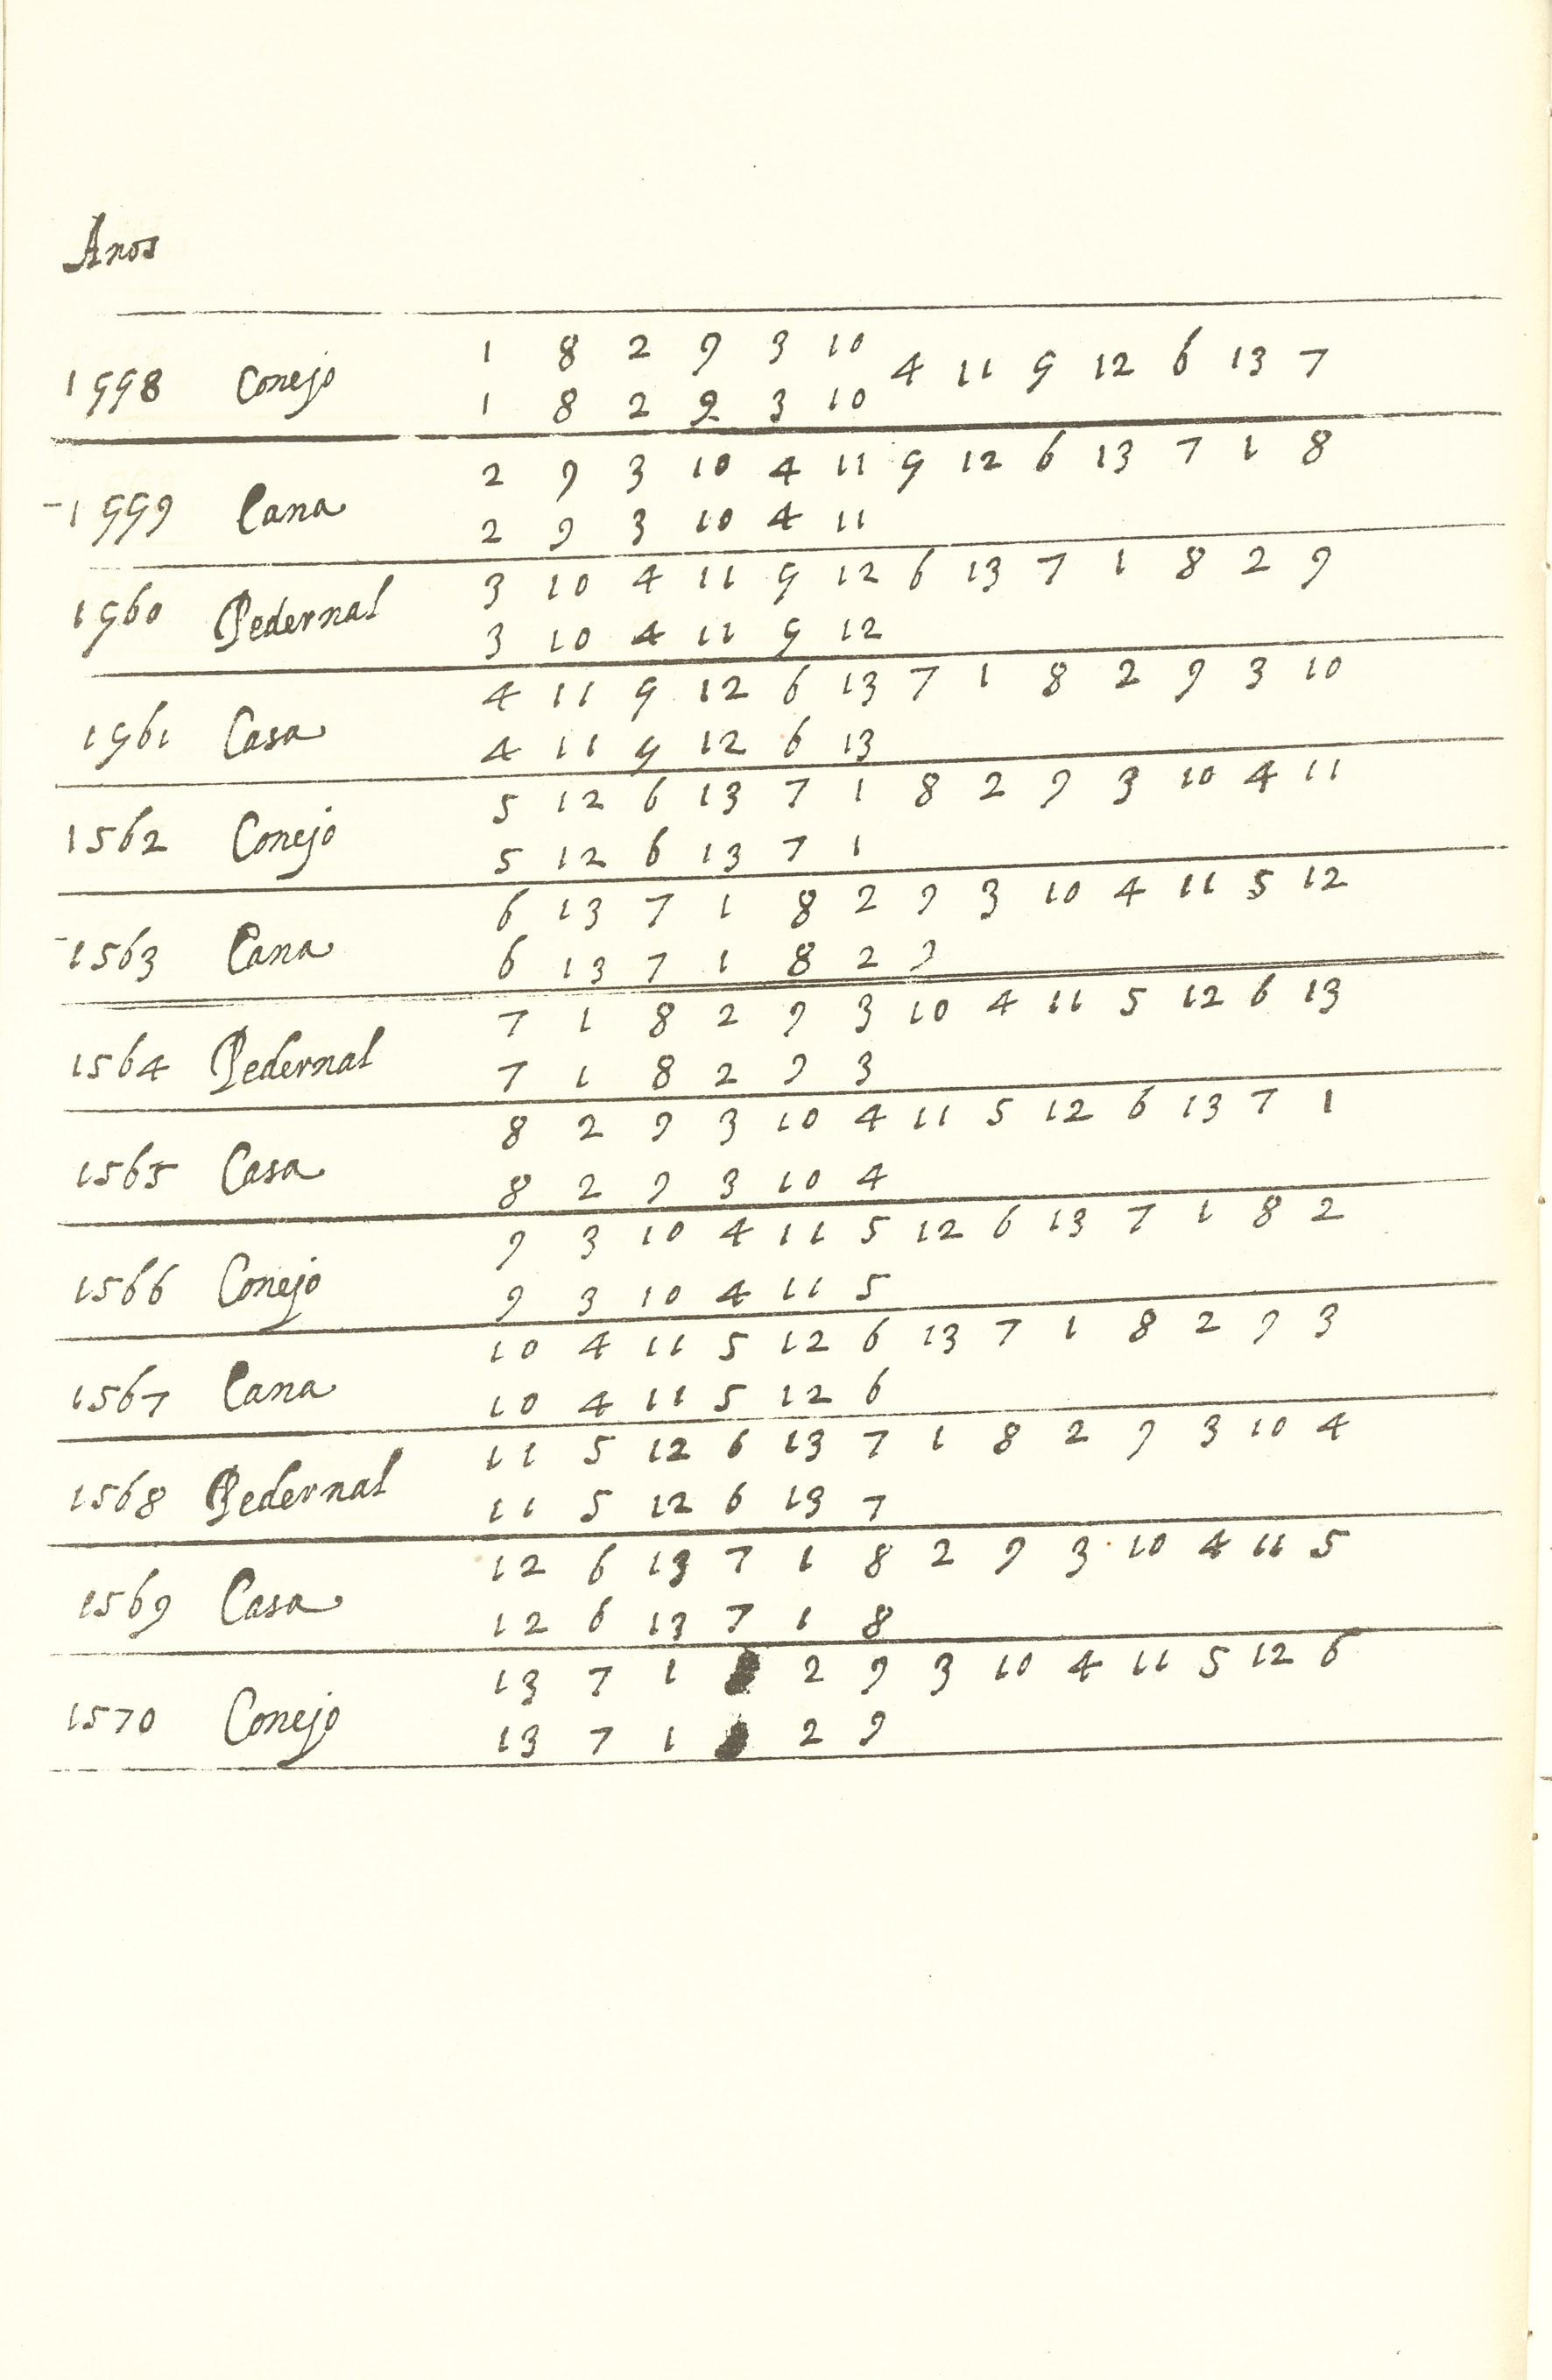 Anos
1558 Conejo 1 8 2 9 3 10 4 11 5 12 6 13 7
1 8 2 9 3 10
1559 Cana 2 9 3 10 4 11 5 12 6 13 7 1 8
2 9 3 10 4 11
1560 Pedernal 3 10 4 11 5 12 6 13 7 1 8 2 9
3 10 4 11 5 12
1561 Casa 4 11 5 12 6 13 7 1 8 2 9 3 10
4 11 5 12 6 13
1562 Conejo 5 12 6 13 7 1 8 2 9 3 10 4 11
5 12 6 13 7 1
1563 Cana 6 13 7 1 8 2 9 3 10 4 11 5 12
6 13 7 1 8 2 9
1564 Pedernal 7 1 8 2 9 3 10 4 11 5 12 6 13
7 1 8 2 9 3
1565 Casa 8 2 9 3 10 4 11 5 12 6 13 7 1
8 2 9 3 10 4
1566 Conejo 9 3 10 4 11 5 12 6 13 7 1 8 2
9 3 10 4 11 5
1567 Cana 10 4 11 5 12 6 13 7 1 8 2 9 3
10 4 11 5 12 6
1568 Pedernal 11 5 12 6 13 7 1 8 2 9 3 10 4
11 5 12 6 13 7
1569 Casa 12 6 13 7 1 8 2 9 3 10 4 11 5
12 6 13 7 1 8
1570 Conejo 13 7 1 2 9 3 10 4 11 5 12 6
13 7 1 2 9